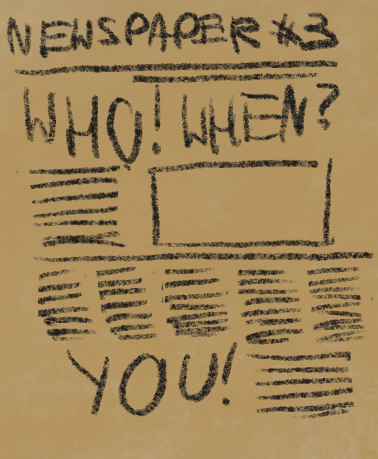 NEWSPAPER #3
WHO! WHEN?
YOU!